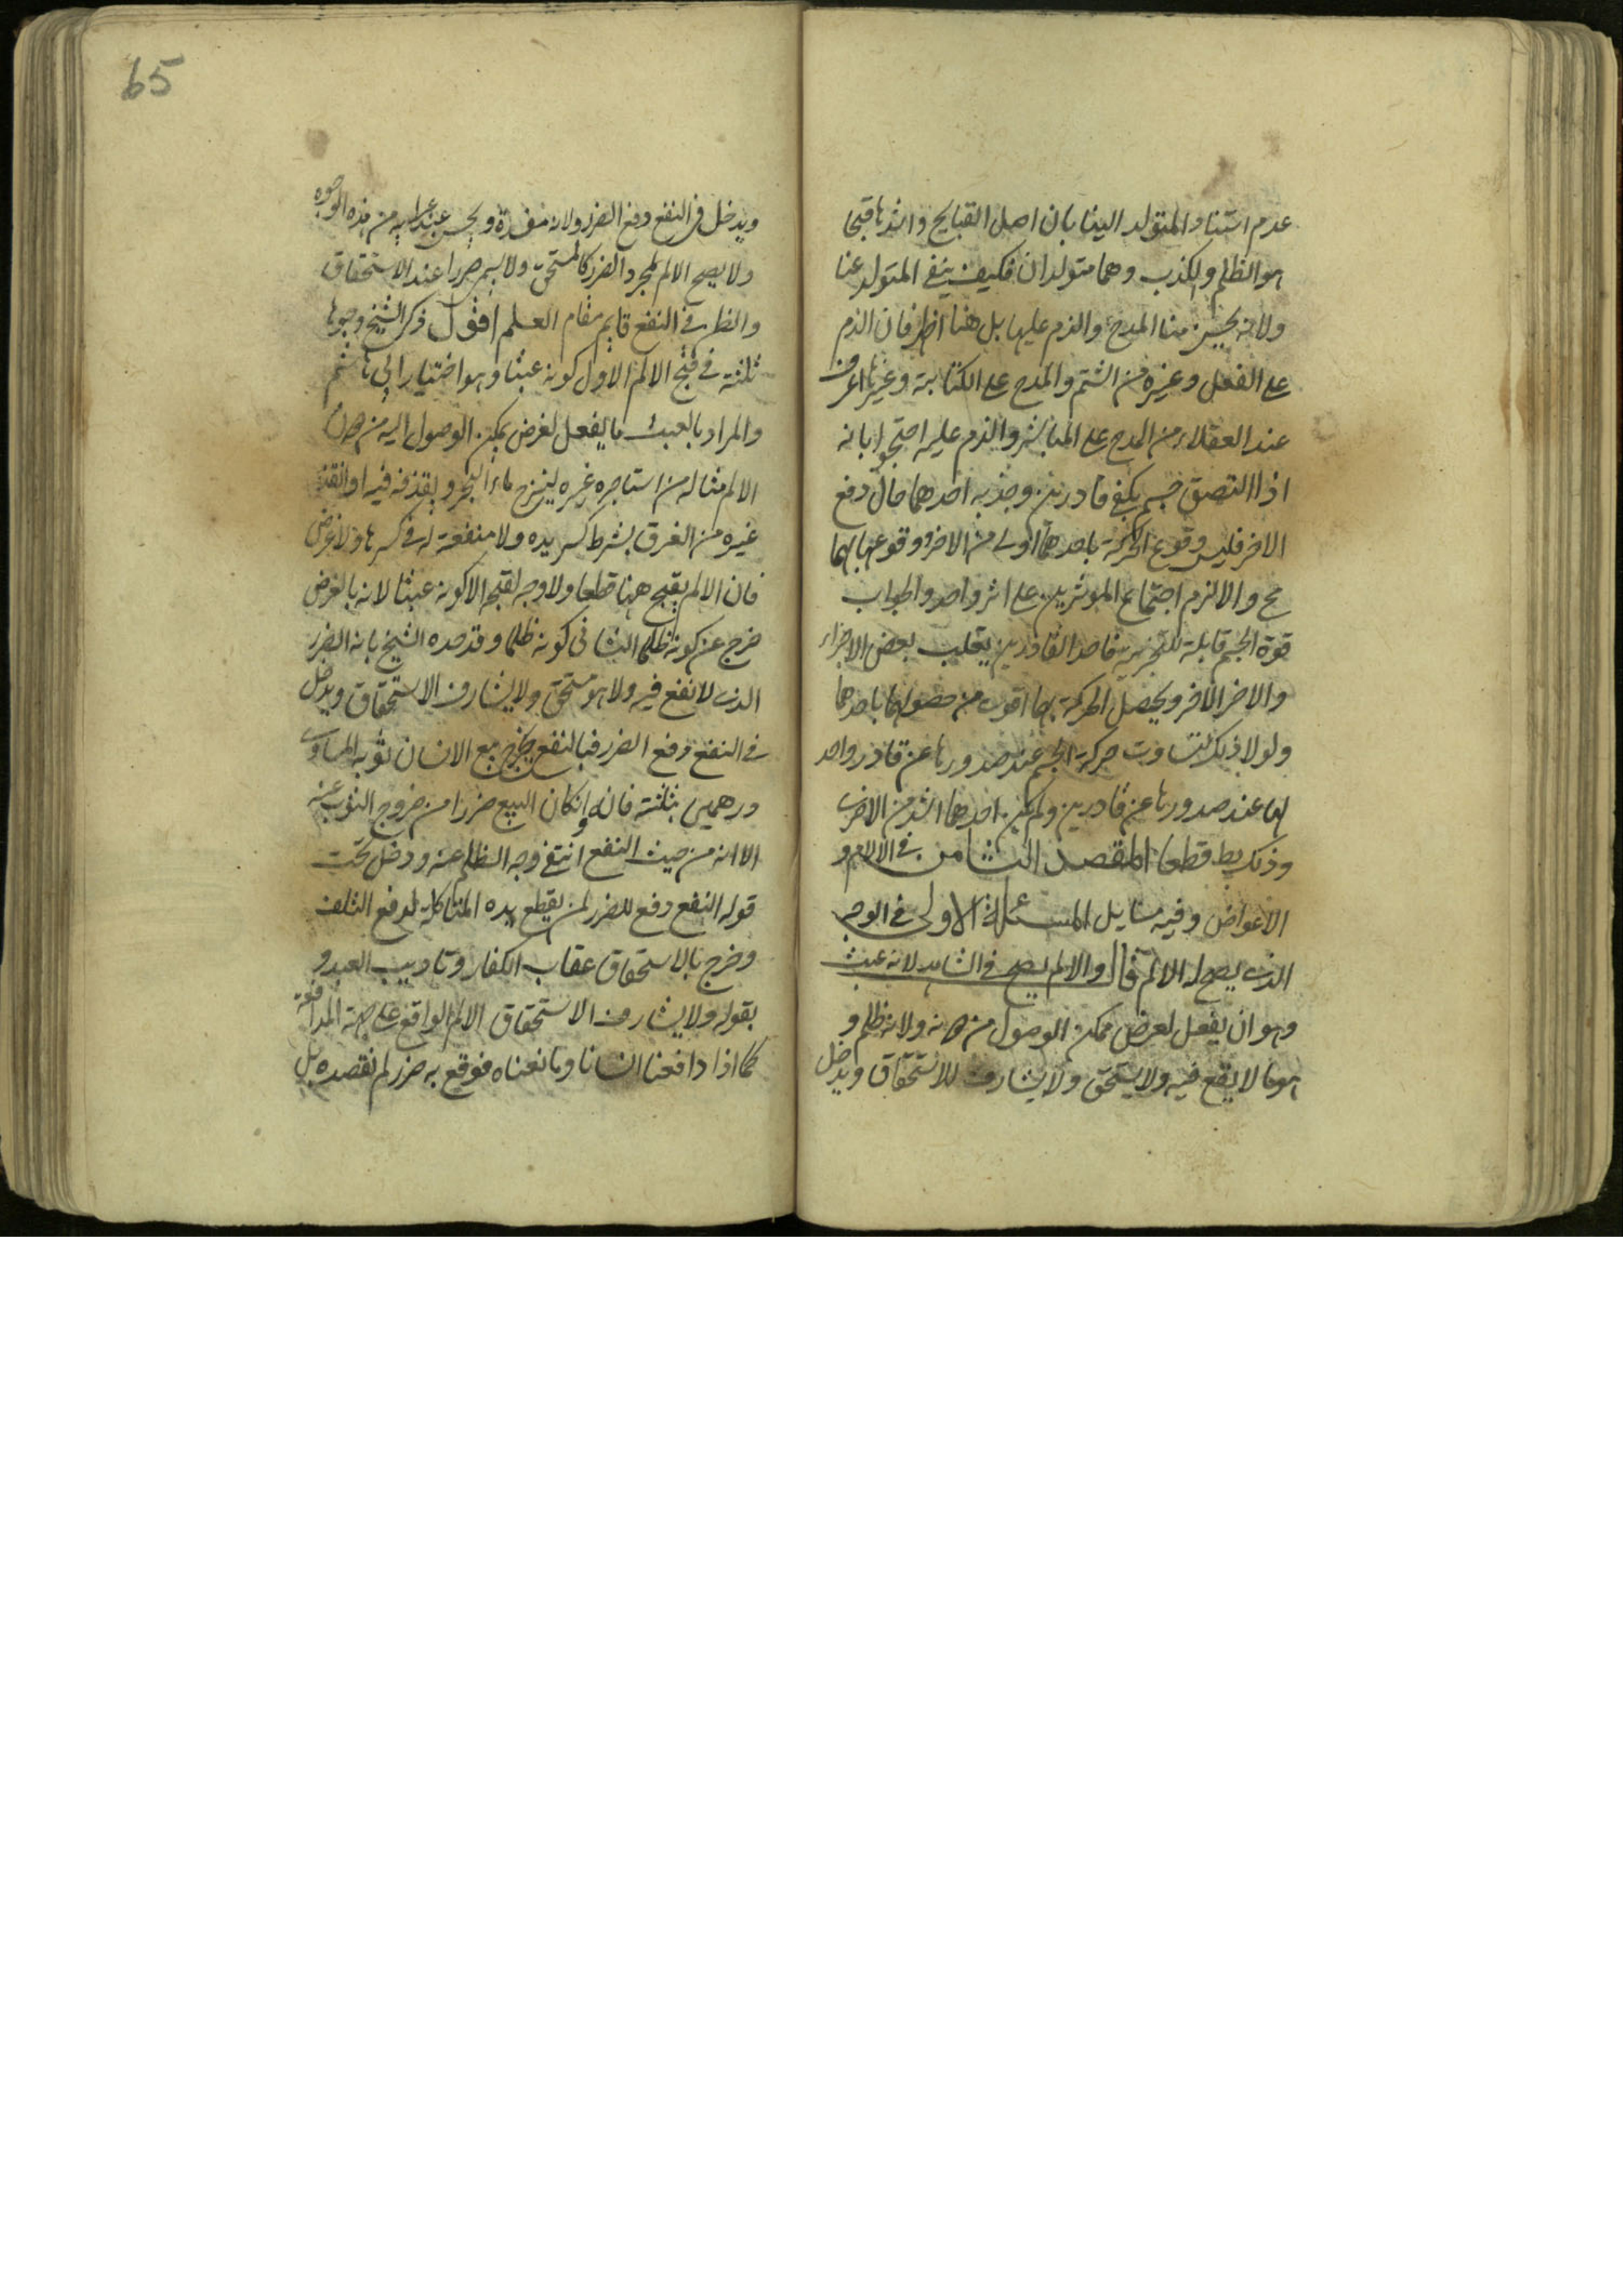 عدم استناد المتولد الينا بان اصل القبايح واشدها قبحا
هو الظلم والكذب وهما متولدان فكيف ينفى المتولد عنا
ولانه يحسن منا المدح والذم عليها بل هنا اظهر فان الذم
على الفعل وغيره من الشتم والمدح على الكتابة وغيرها اعرف
عند العقلاء من المدح على المباشر والذم عليه احتجوا بانه
اذا التصق جسم بكفى قادرين وجذبه احدهما حال دفع
الاخر فليس وقوع الحركة باحدهما اولى من الاخر ووقوعها بهما
مح والا لزم اجتماع الموثرين على اثر واحد والجواب
قوة الجسم قابلة للتجزية فاحد القادرين يقلب بعض الاجزاء
والاخر الاخر ويحصل الحركة بهما اقوى من حصولها باحدهما
ولولا ذلك لتساوت حركة الجسم عند صدورها عن قادر واحد
لها عند صدورها عن قادرين ولم يكن احدهما اشد من الاخرى
وذلك بط قطعا المقصد الثامن في الالام و
الاعواض وفيه مسايل المسئلة الاولى في الوجه
الذى يصح له الالم قال والالم يصح في الشاهد لانه عبث
وهو ان يفعل لغرض ممكن الوصول من دونه ولانه ظلم و
هو ما لا نفع فيه ولا يستحق ولا يشارف للاستحقاق ويدخل
65
ويدخل في النفع دفع الضرر ولانه مفسدة ويحسن عند من هذه الوجوه
ولا يصح الالم لمجرد الضرر كالمستحق ولا يسم ضررا عند الاستحقاق
والظن في النفع قايم مقام العلم اقول ذكر الشيخ وجوها
ثلثة في قبح الالم الاول كونه عبثا وهو اختيار ابي هاشم
والمراد بالعبث ما يفعل لغرض يمكن الوصول اليه من دون
الالم مثاله من استاجره غيره لينزح ماء البحر ويقذفه فيه او انقذ
غيره من الغرق بشرط كسر يده ولا منفعة له في كسرها ولا غرض
فان الالم يقبح هنا قطعا ولا وجه لقبحه الا كونه عبثا لانه بالغرض
خرج عن كونه ظلما الثاني كونه ظلما وقد حده الشيخ بانه الضرر
الذى لا نفع فيه ولا هو مستحق ولا يشارف الاستحقاق ويدخل
في النفع دفع الضرر فبالنفع يخرج بيع الانسان ثوبه المساوى
درهمين بثلثة فانه وان كان البيع ضررا من خروج الثوب عنه
الا انه من حيث النفع انتفى وجه الظلم عنه ودخل تحت
قوله النفع دفع للضرر لمن يقطع يده المتاكلة لدفع التلف
وخرج بالاستحقاق عقاب الكفار وتاديب العبد و
بقوله ولا يشارف الاستحقاق الالم الواقع على جهة المدافعة
كما اذا دافعنا انسانا ومانعناه فوقع به ضرر لم نقصده بل